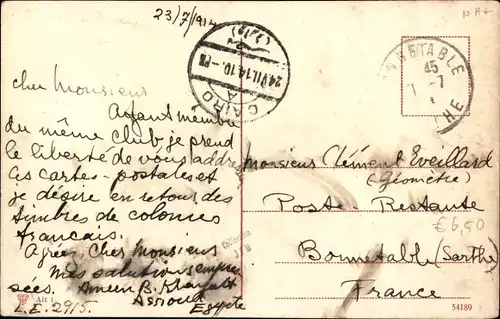 23/7/1914
CAIRO
24.VII.14.10-PM
BONNETABLE
45
cher Monsieur
Ayant membre
du même club, je prend
le liberté de vous addres
ces cartes-postales et
je désire en retour des
timbres de colonies
français.
Agréez, cher Monsieur
mes salutations empres
sées. Ameen B.
Assiout
Egypte
L.E. 2915.
Monsieur Clément Eveillard
(Géomètre)
Poste Restante
Bonnetable (Sarthe)
France
€6,50
Collection
54189